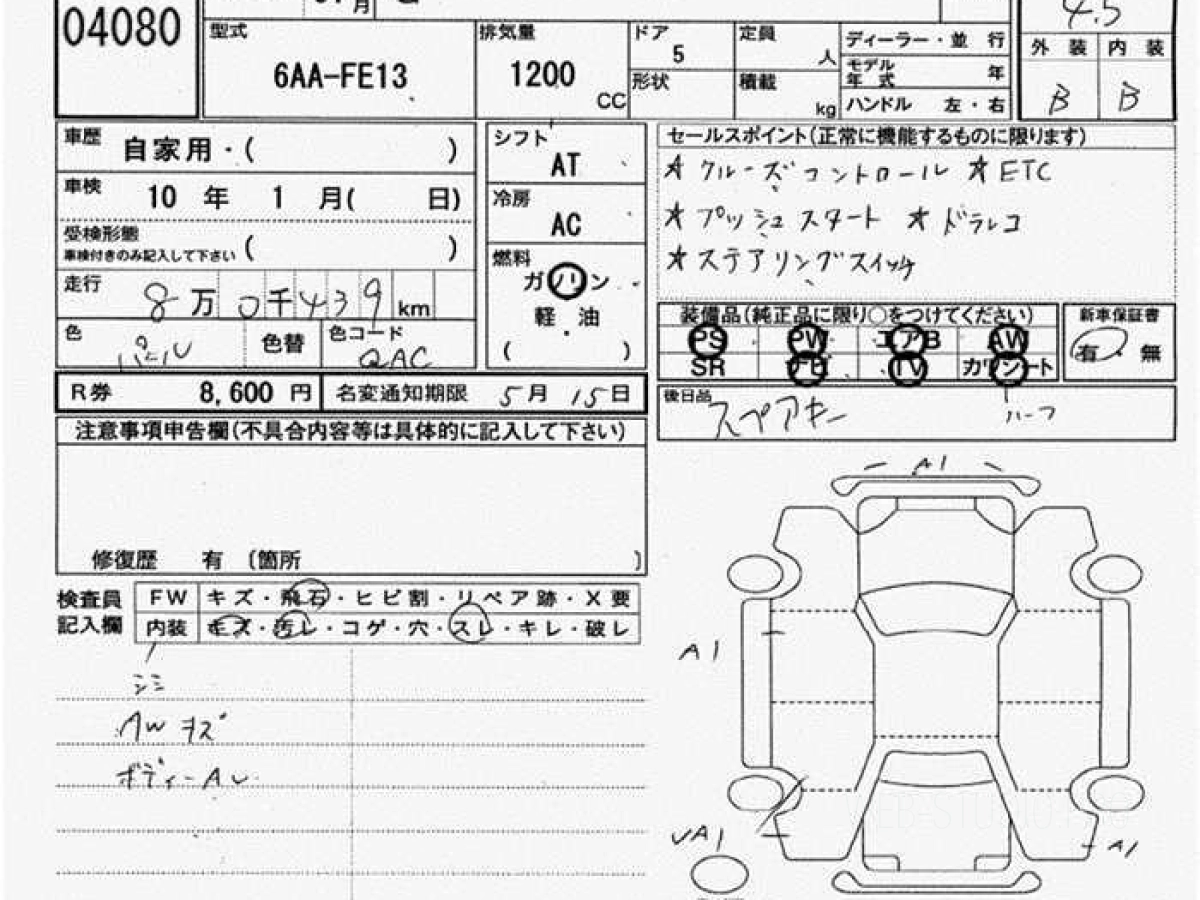 04080
月
4.5
型式
6AA-FE13
排気量
1200
CC
ドア
5
形状
定員
人
積載
kg
ディーラー・並 行
モデル年式 年
ハンドル 左・右
外 装 内 装
B B
車歴 自家用・( )
車検 10 年 1 月( 日)
受検形態
車検付きのみ記入して下さい ( )
走行 8万0千439km
色 パール 色替 色コード QAC
シフト
AT
冷房
AC
燃料
ガソリン
軽・油
( )
セールスポイント(正常に機能するものに限ります)
★ クルーズコントロール ★ ETC
★ プッシュスタート ★ ドラレコ
★ ステアリングスイッチ
装備品(純正品に限り○をつけてください)
PS PW エアB AW
SR ナビ TV カワシート
新車保証書
有・無
ハーフ
後日品
スペアキー
R券 8,600 円 名変通知期限 5月 15日
注意事項申告欄(不具合内容等は具体的に記入して下さい)
修復歴 有 〔箇所 〕
検査員
記入欄
FW キズ・飛石・ヒビ割・リペア跡・X要
内装 キズ・汚レ・コゲ・穴・スレ・キレ・破レ
シミ
AW キズ
A1
A1
VA1
A1